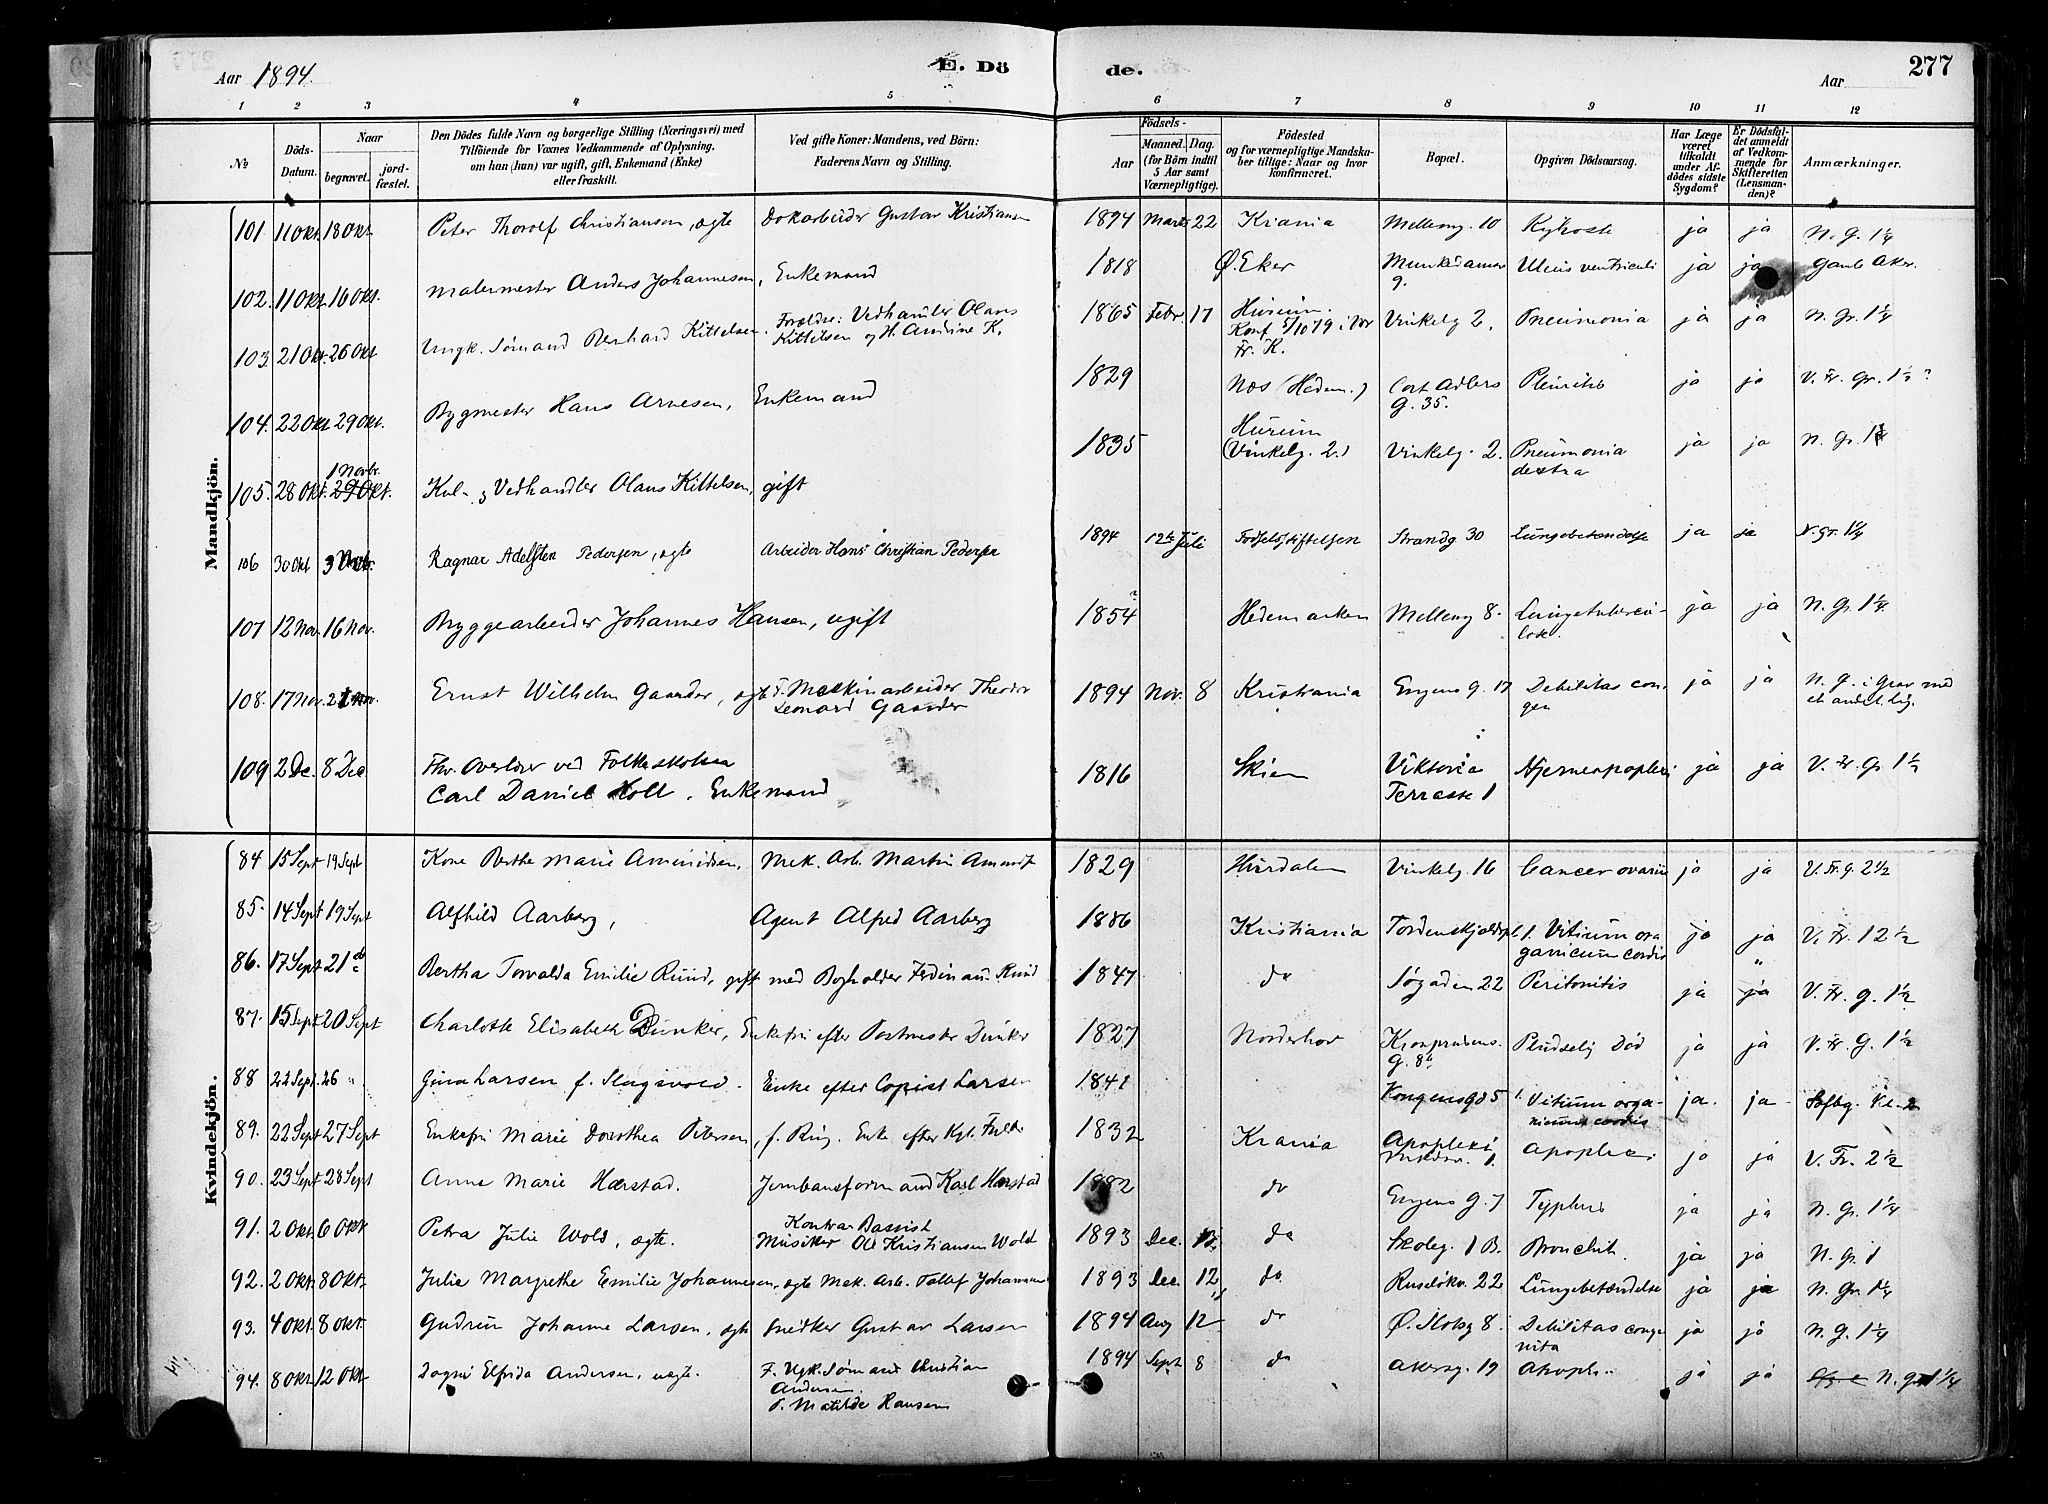 Aar 1894.
E. Dö
de.
Aar
277
1 2 3 4 5 6 7 8 9 10 11 12
№
Döds-Datum.
Naar
begravet.
jord-fæstet.
Den Dödes fulde Navn og borgerlige Stilling (Næringsvei) med
Tilföiende for Voxnes Vedkommende af Oplysning,
om han (hun) var ugift, gift, Enkemand (Enke)
eller fraskilt.
Ved gifte Koner: Mandens, ved Börn:
Faderens Navn og Stilling.
Födsels-
Aar
Maaned. Dag.
(for Börn indtil
5 Aar samt
Værnepligtige).
Födested
og for værnepligtige Mandska-
ber tillige: Naar og hvor
konfirmeret.
Bopæl.
Opgiven Dödsaarsag.
Har Læge
været
tilkaldt
under Af-
dödes sidste
Sygdom?
Er Dödsfal-
det anmeldt
af Vedkom-
mende for
Skifteretten
(Lensman-
den)?
Anmærkninger.
Mandkjön.
101 11 Okt. 18 Okt Peter Thorolf Christiansen, ægte Dokarbeider Gustav Kristiansen 1894 Marts 22 Krania Melleng. 10 Kighoste ja ja N. G. 1¼
102. 11 Okt. 16 Okt. Malermester Anders Johannesen, Enkemand 1818 Ø. Eker Munkedamsv 9. Ulcus ventriculi ja ja Gamle Aker.
103 21 Okt. 26 Okt Ungk. Sømand Bernhard Kittelsen. Forældre: Vedhandler Olaus
Kittelsen og H. Andrine K. 1865 Febr. 17 Hurum.
Konf 5/10 79 i Vor
Fr. K. Vinkelg 2. Pneumonia ja ja N. Gr. 1¼
104. 22 Okt 29 Okt. Bygmester Hans Arnesen, Enkemand 1829 Næs (Hedem.) Cort Adlers
G. 35. Pleuritis ja ja V. Fr. Gr. 1½ ?
105. 28 Okt. 1 Novbr. 29 Okt. Kul- og Vedhandler Olaus Kittelsen, gift 1835 Hurum
(Vinkelg. 2.) Vinkelg. 2. Pneumonia
dextra ja ja N. Gr. 1
106 30 Okt 3 Novbr. Ragnar Adelsten Pedersen, ægte Arbeider Hans Christian Pedersen 1894 12te Juli Fødselsstiftelsen Strandg 30 Lungebetændelse ja ja N. Gr. 1¼
107 12 Nov. 16 Nov. Bryggearbeider Johannes Hansen, ugift 1854 ? Hedemarken Melleng 8. Lungetubercu-
lose. ja ja N. G. 1¼
108. 17 Nov. Nov. Ernst Wilhelm Gaarder, ægte F. Maskinarbeider Theodor
Leonard Gaarder 1894 Nov. 8 Kristiania Eugens G. 17 Debilitas con
gen ja ja N. G. i Grav med
et andet Lig.
109 2 De. 8 Dec Fhv. Overlærer ved Folkeskolen
Carl Daniel Holt, Enkemand 1816 Skien Viktoria
Terrasse 1 Hjerneapoplexi ja ja V. Fr. G 1½
Kvindekjön.
84 15 Sept 19 Sept Kone Berthe Marie Amundsen, Mek. Arb. Martin Amunds 1829 Hurdalen Vinkelg. 16 Cancer ovarii ja ja V. Fr. G. 2½
85. 14 Sept 19 Sept Alfhild Aarberg, Agent Alfred Aarberg 1886 Kristiania Tordenskjoldspl. 1. Vitium or
ganicum cordis ja ja V. Fr. 1 2½
86. 17 Sept 21 Bertha Torvalda Emilie Ruud, gift med Bogholder Ferdinan Ruud 1847 do Søgaden 22 Peritonitis ja ja V. Fr. G. 1½
87. 15 Sept 20 Sept Charlotte Elisabeth Dunker, Enkefru efter Postmester Dunker 1827 Norderhov Kronprinsens.
G. 8b Pludselig Død ja ja V. Fr. G. 1½
88 22 Sept. 26 " Gina Larsen f. Slagsvold. Enke efter Copist Larsen 1841 Kongensgd 5 Vitium orga-
nicum cordis ja. ja Kl. 2
89. 22 Sept 27 Sept Enkefru Marie Dorothea Petersen, f. Ring. Enke efter Kgl. 1832 Krania Apoplexi ja ja V. Fr. 2½
90. 23 Sept 28 Sept Anne Marie Hærstad. Jernbaneformand Karl Hærstad 1882 do Eugens G. 7 Typhus ja ja N. Gr. 1¼
91. 2 Okt 6 Okt Petra Julie Wold, ægte. Kontra Bassist
Musiker Ole Kristiansen Wold 1893 Dec. do Skoleg. 1 B. Bronchit. ja ja N. gr. 1
92. 2 Okt. 8 Okt. Julie Margrethe Emilie Johannesen, ægte Mek. Arb. Tollef Johannesen 1893 Dec. 12 do Ruseløkv. 22 Lungebetændelse ja ja N. Gr. 1¼
93. 4 Okt. 8 Okt. Gudrun Johanne Larsen, ægte Snedker Gustav Larsen 1894 Aug 12 do Ø. Slotsg 8. Debilitas conge
nita ja ja N. G. 1¼
94. 8 Okt. 12 Okt Dagny Elfrida Andersen, uægte. F. Ugk. Sømand Christian
Andersen.
M. Matilde Hansen 1894 Sept 8 do Akersg. 19 Atroph.. ja ja N. gr 1¼